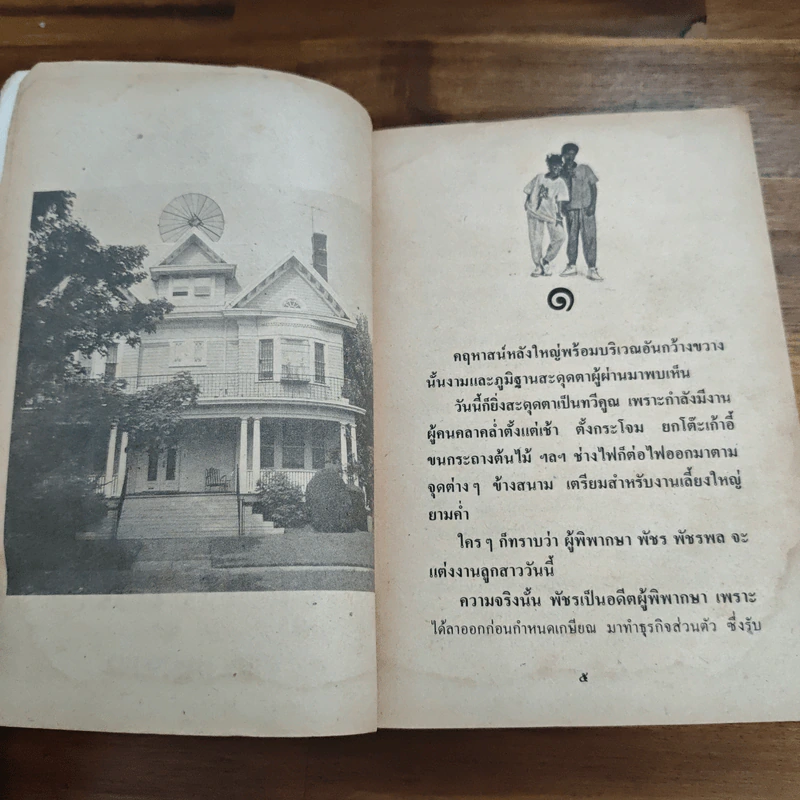 ๑
คฤหาสน์หลังใหญ่พร้อมบริเวณอันกว้างขวาง
นั้นงามและภูมิฐานสะดุดตาผู้ผ่านมาพบเห็น
วันนี้ก็ยิ่งสะดุดตาเป็นทวีคูณ เพราะกำลังมีงาน
ผู้คนคลาคล่ำตั้งแต่เช้า ตั้งกระโจม ยกโต๊ะเก้าอี้
ขนกระถางต้นไม้ ฯลฯ ช่างไฟก็ต่อไฟออกมาตาม
จุดต่าง ๆ ข้างสนาม เตรียมสำหรับงานเลี้ยงใหญ่
ยามค่ำ
ใคร ๆ ก็ทราบว่า ผู้พิพากษา พัชร พัชรพล จะ
แต่งงานลูกสาววันนี้
ความจริงนั้น พัชรเป็นอดีตผู้พิพากษา เพราะ
ได้ลาออกก่อนกำหนดเกษียณ มาทำธุรกิจส่วนตัว ซึ่งรับ
๕